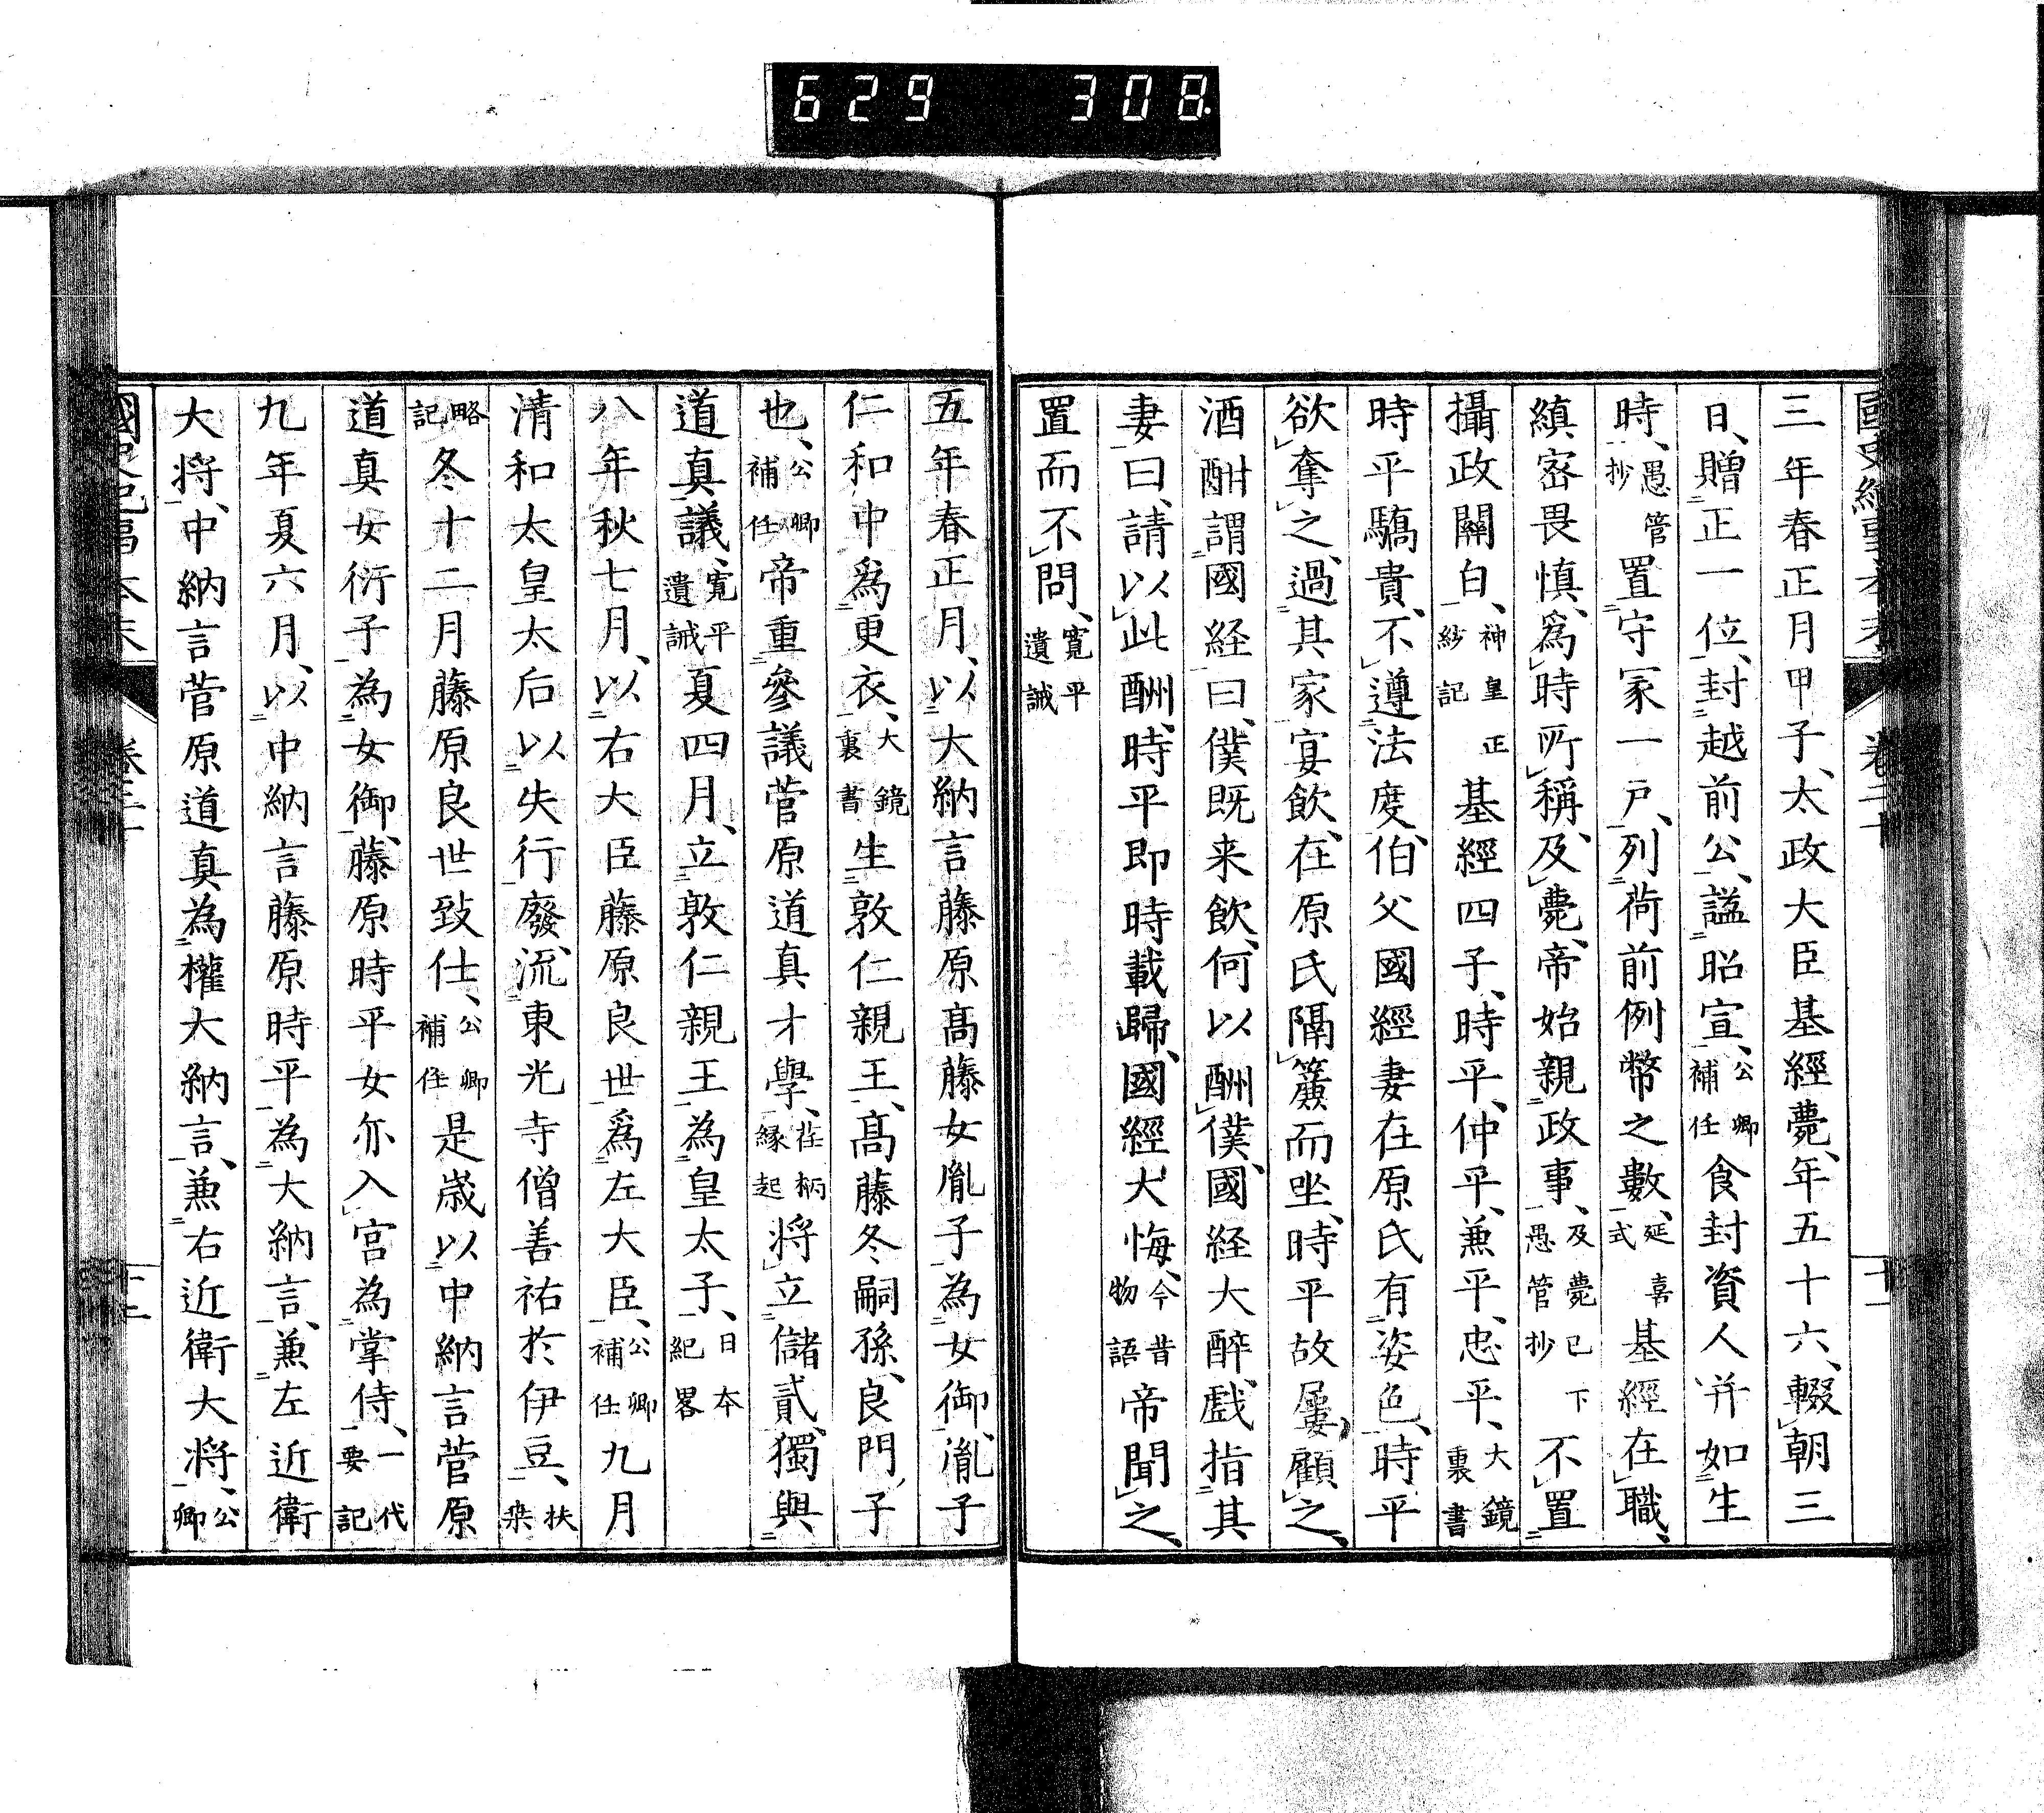 629 308.
三年春正月甲子、太政大臣基經薨、年五十六、輟朝三
日、贈正一位、封越前公、謚昭宣、公卿補任食封資人并如生
時、愚管抄置守冢一戸、列荷前例幣之數、延喜式基經在職、
縝密畏慎、爲時所稱、及薨、帝始親政事、及薨已下愚管抄不置
攝政關白、神皇正紗記基經四子、時平、仲平、兼平、忠平、大鏡裏書
時平驕貴、不遵法度、伯父國經妻在原氏有姿色、時平
欲奪之、過其家宴飲、在原氏隔簾而坐、時平故屢顧之、
酒酣謂國経曰、僕既来飲、何以酬僕、國経大醉、戯指其
妻曰、請以此酬、時平即時載歸、國經大悔、今昔物語帝聞之、
置而不問、寛平遺誡
五年春正月、以大納言藤原高藤女胤子為女御、胤子
仁和中爲更衣、大鏡裏書生敦仁親王、高藤冬嗣孫、良門子
也、公卿補任帝重參議菅原道真才學、荏柄縁起将立儲貳、獨與
道真議、寛平遺誡夏四月、立敦仁親王為皇太子、日本紀畧
八年秋七月、以右大臣藤原良世爲左大臣、公卿補任九月
清和太皇太后以失行廢、流東光寺僧善祐於伊豆、扶桒
略記冬十二月藤原良世致仕、公卿補任是歳以中納言菅原
道真女衍子為女御、藤原時平女亦入宮為掌侍、一代要記
九年夏六月、以中納言藤原時平為大納言、兼左近衛
大将、中納言菅原道真為權大納言、兼右近衛大将、公卿